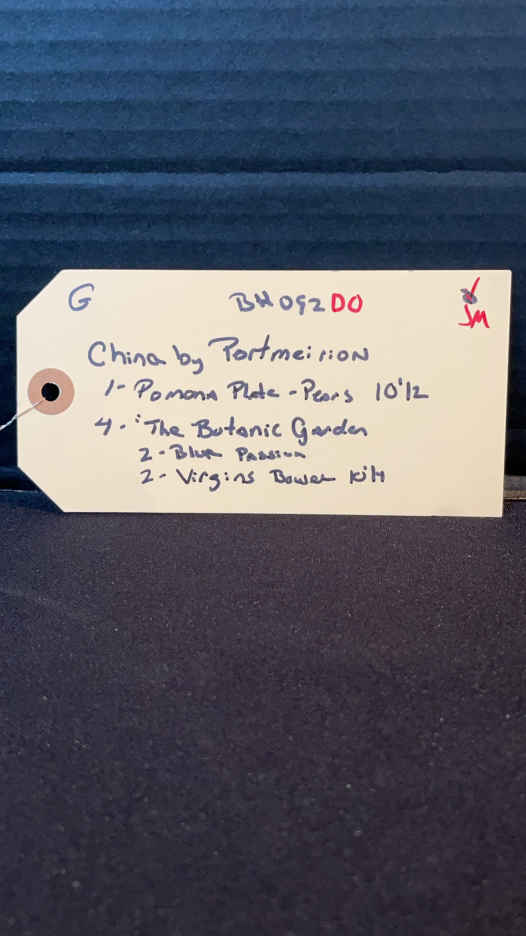 G BH092DO
JM
China by Portmeirion
1- Pomona Plate - Pears 10 1/2
4 - "The Botanic Garden
2 - Blue Passion
2 - Virgins Bower